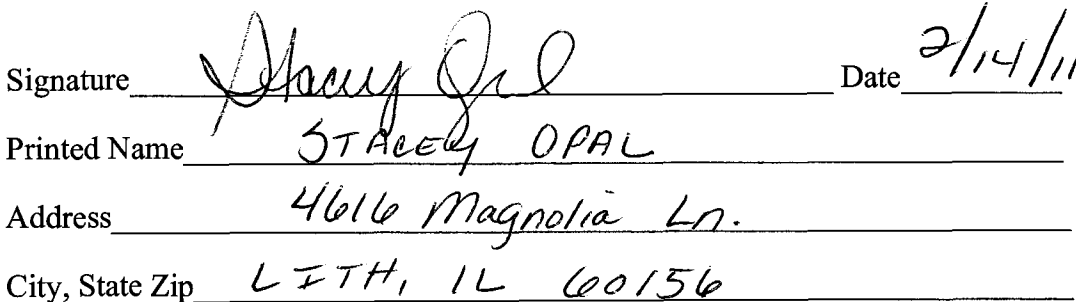 Signature Stacey Opal Date 2/14/11
Printed Name STACEY OPAL
Address 4616 Magnolia Ln.
City, State Zip LITH, IL 60156